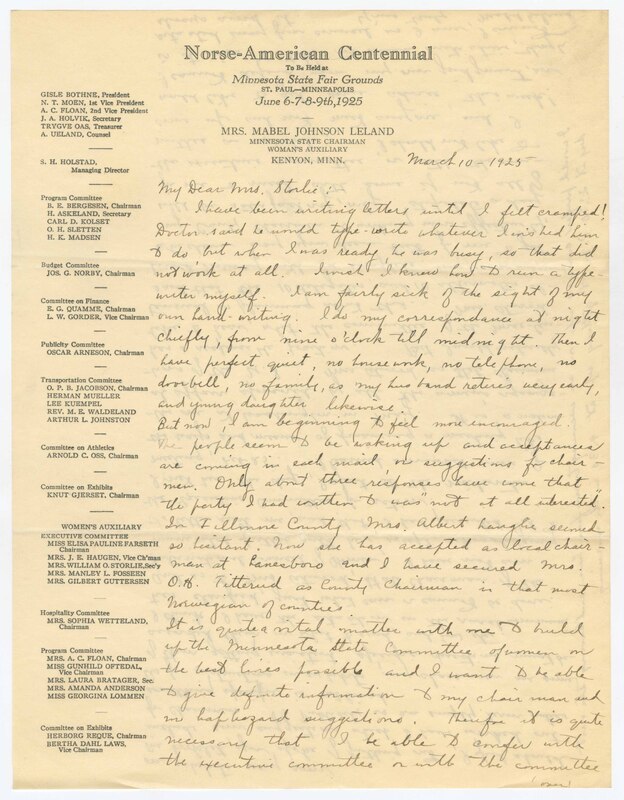 Norse-American Centennial
To Be Held at
Minnesota State Fair Grounds
ST. PAUL—MINNEAPOLIS
June 6-7-8-9th, 1925
MRS. MABEL JOHNSON LELAND
MINNESOTA STATE CHAIRMAN
WOMAN'S AUXILIARY
KENYON, MINN.
GISLE BOTHNE, President
N. T. MOEN, 1st Vice President
A. C. FLOAN, 2nd Vice President
J. A. HOLVIK, Secretary
TRYGVE OAS, Treasurer
A. UELAND, Counsel
S. H. HOLSTAD,
Managing Director
Program Committee
B. E. BERGESEN, Chairman
H. ASKELAND, Secretary
CARL D. KOLSET
O. H. SLETTEN
H. K. MADSEN
Budget Committee
JOS. G. NORBY, Chairman
Committee on Finance
E. G. QUAMME, Chairman
L. W. GORDER, Vice Chairman
Publicity Committee
OSCAR ARNESON, Chairman
Transportation Committee
O. P. B. JACOBSON, Chairman
HERMAN MUELLER
LEE KUEMPEL
REV. M. E. WALDELAND
ARTHUR L. JOHNSTON
Committee on Athletics
ARNOLD C. OSS, Chairman
Committee on Exhibits
KNUT GJERSET, Chairman
WOMEN'S AUXILIARY
EXECUTIVE COMMITTEE
MISS ELISA PAULINE FARSETH
Chairman
MRS. J. E. HAUGEN, Vice Ch'man
MRS. WILLIAM O. STORLIE, Sec'y
MRS. MANLEY L. FOSSEEN
MRS. GILBERT GUTTERSEN
Hospitality Committee
MRS. SOPHIA WETTELAND,
Chairman
Program Committee
MRS. A. C. FLOAN, Chairman
MISS GUNHILD OFTEDAL,
Vice Chairman
MRS. LAURA BRATAGER, Sec.
MRS. AMANDA ANDERSON
MISS GEORGINA LOMMEN
Committee on Exhibits
HERBORG REQUE, Chairman
BERTHA DAHL LAWS,
Vice Chairman
March 10 - 1925
My Dear Mrs. Storlie:
I have been writing letters until I felt cramped!
Doctor said he would type-write whatever I wished him
to do but when I was ready, he was busy, so that did
not work at all. I wish I knew how to run a type-
writer myself. I am fairly sick of the sight of my
own hand-writing. I do my correspondance at night
chiefly, from nine o'clock till midnight. Then I
have perfect quiet, no housework, no telephone, no
doorbell, no family, as my husband retires very early,
and young daughter likewise.
But now, I am beginning to feel more encouraged.
The people seem to be waking up and acceptances
are coming in each mail, or suggestions for chair-
men. Only about three responses have come that
the party I had written to was "not at all interested".
In Fillmore County Mrs. Albert seemed
so hesitant. Now she has accepted as local chair-
man at Lanesboro and I have secured Mrs.
O. H. as County Chairman in that most
Norwegian of counties
It is quite a vital matter with me to build
up the Minnesota State Committee of women on
the best lines possible and I want to be able
to give definite information to my chairman and
no haphazard suggestions. Therefor it is quite
necessary that I be able to confer with
the executive committee or with the committee
(over)